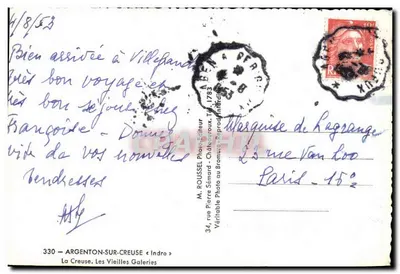 4/8/53
Bien arrivée à Villefranche
très bon voyage et
très bon séjour chez
Françoise - Donnez
vite de vos nouvelles
Tendresses
Marquise de Lagrange
23 rue Van Loo
Paris - 16e
M. ROUSSEL Photo-Editeur
34, rue Pierre Sémard - Châteauroux, Tél. 1728
Véritable Photo au Bromure
330 — ARGENTON-SUR-CREUSE « Indre »
La Creuse, Les Vieilles Galeries